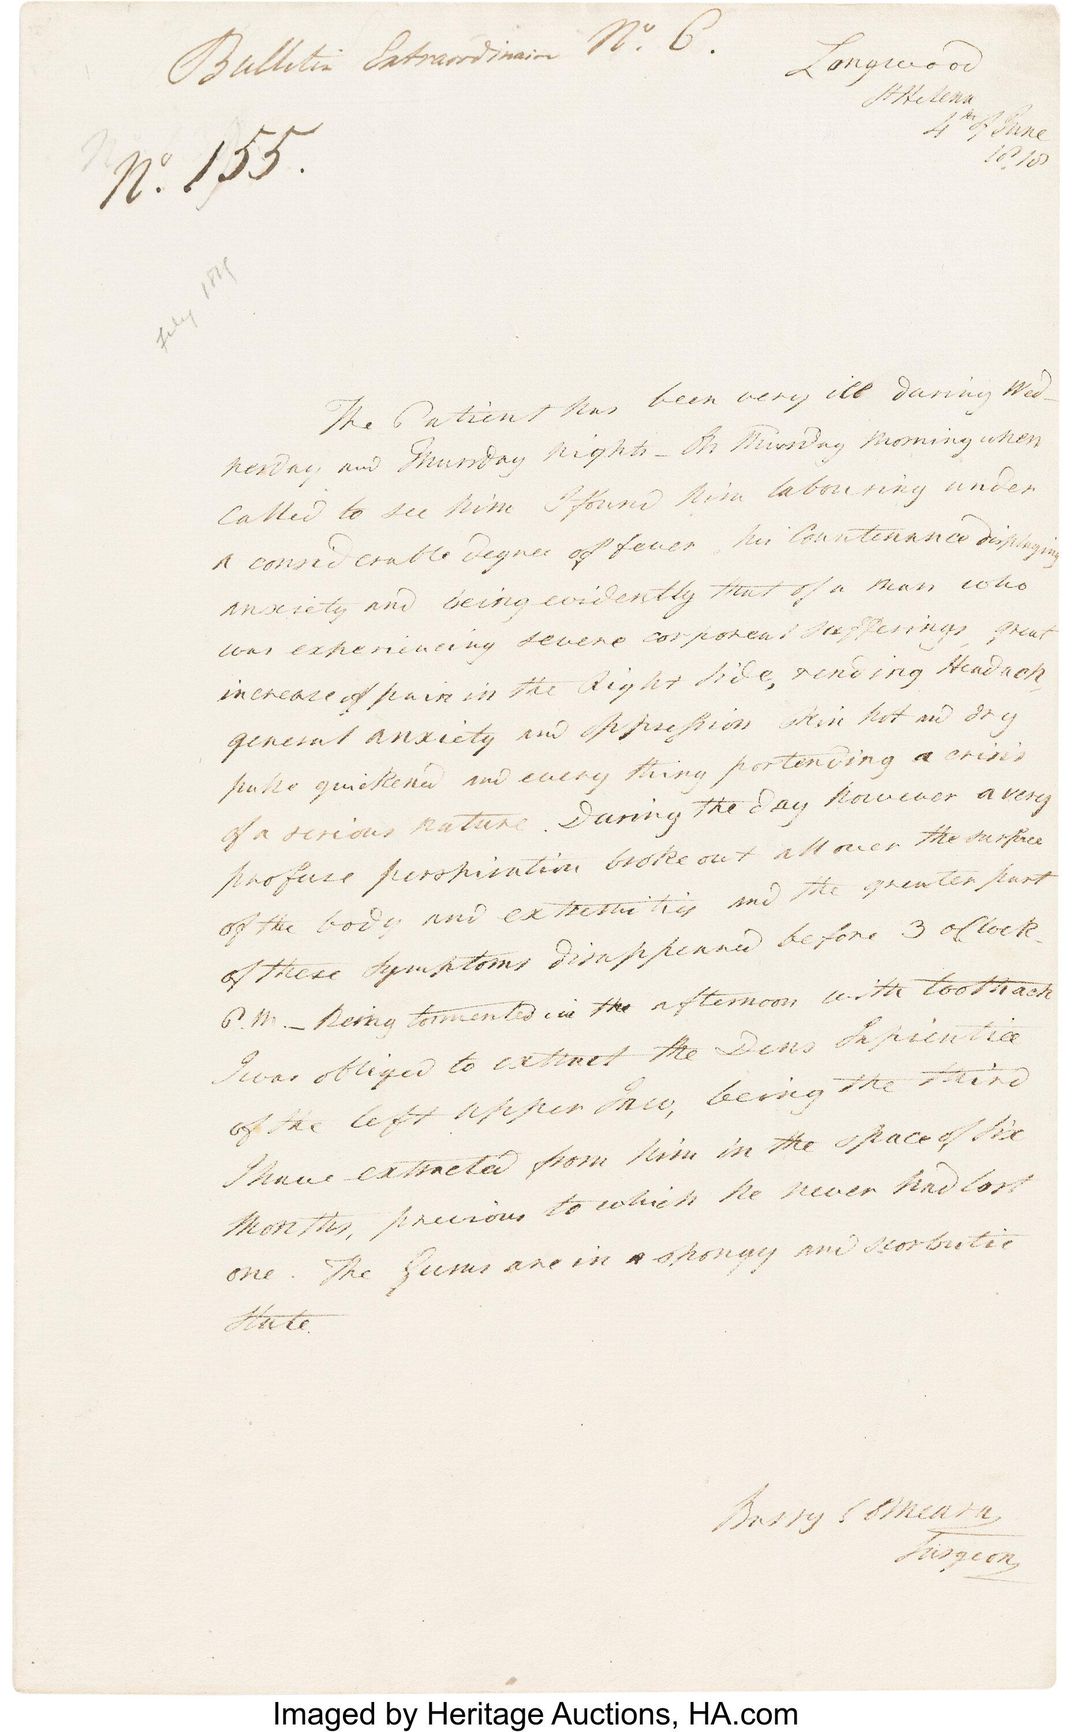 Bulletin Extraordinaire No. 6.
Longwood
St Helena
4th of June
1818
No. 155.
July 1818
The Patient has been very ill during Wed-
nesday and Thursday nights - On Thursday morning when
called to see him I found him labouring under
a considerable degree of fever, his Countenance displaying
anxiety and being evidently that of a man who
was experiencing severe corporeal sufferings, great
increase of pain in the Right Side, rending Headach,
general anxiety and oppression Skin hot and dry
pulse quickened and every thing portending a crisis
of a serious nature. During the day however a very
profuse perspiration broke out all over the surface
of the body and extremities and the greater part
of these symptoms disappeared before 3 oClock
P.M. - Being tormented in the afternoon with toothach
I was obliged to extract the Dens Sapientiae
of the left upper Jaw, being the third
I have extracted from him in the space of six
Months, previous to which he never had lost
one. The Gums are in a spongy and scorbutic
State.
Barry E OMeara
Surgeon
Imaged by Heritage Auctions, HA.com